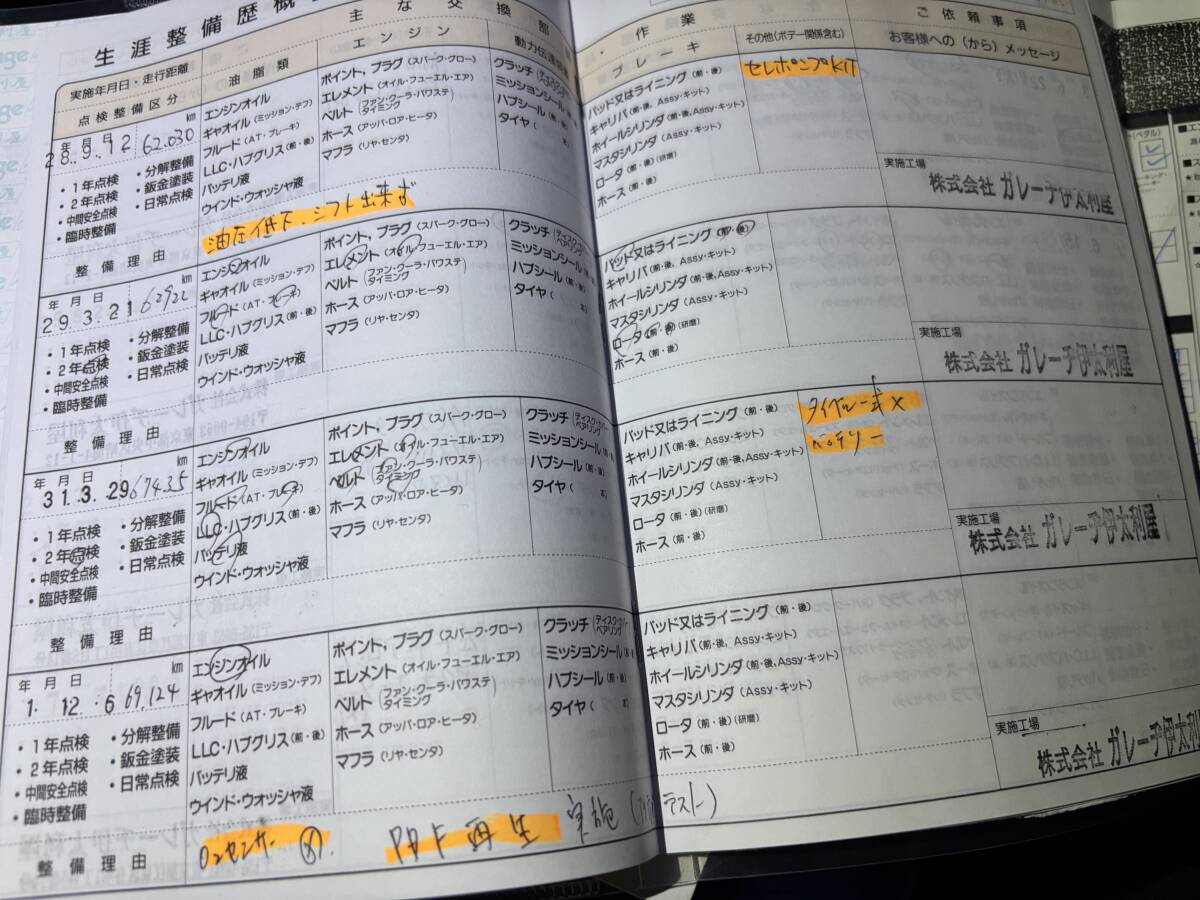 生涯整備歴概
実施年月日・走行距離
点検整備区分
主な交換部
・作業
油脂類
エンジン
動力伝達
ブレーキ
その他(ボデー関係含む)
ご依頼事項
お客様への(から)メッセージ
年 月 日 km
28. 9. 12 62.030
・1年点検 ・分解整備
・2年点検 ・鈑金塗装
・中間安全点検 ・日常点検
・臨時整備
整備理由
エンジンオイル
ギヤオイル(ミッション・デフ)
フルード(AT・ブレーキ)
LLC・ハブグリス(前・後)
バッテリ液
ウインド・ウオッシャ液
油圧低下、シフト出来ず
ポイント、プラグ(スパーク・グロー)
エレメント(オイル・フューエル・エア)
ベルト(ファン・クーラ・パワステ タイミング)
ホース(アッパ・ロア・ヒータ)
マフラ(リヤ・センタ)
クラッチ
ミッションシール
ハブシール(前・後)
タイヤ(
パッド又はライニング(前・後)
キャリパ(前・後、Assy・キット)
ホイールシリンダ(前・後、Assy・キット)
マスタシリンダ(Assy・キット)
ロータ(前・後)(研磨)
ホース(前・後)
セレポンプKIT
実施工場
株式会社 ガレーヂ伊太利屋
年 月 日 km
29. 3. 21 62922
・1年点検 ・分解整備
・2年点検 ・鈑金塗装
・中間安全点検 ・日常点検
・臨時整備
整備理由
エンジンオイル
ギヤオイル(ミッション・デフ)
フルード(AT・ブレーキ)
LLC・ハブグリス(前・後)
バッテリ液
ウインド・ウオッシャ液
ポイント、プラグ(スパーク・グロー)
エレメント(オイル・フューエル・エア)
ベルト(ファン・クーラ・パワステ タイミング)
ホース(アッパ・ロア・ヒータ)
マフラ(リヤ・センタ)
クラッチ(ディスク・カバー ベアリング
ミッションシール(前・後)
ハブシール(前・後)
タイヤ( 本)
パッド又はライニング(前・後)
キャリパ(前・後、Assy・キット)
ホイールシリンダ(前・後、Assy・キット)
マスタシリンダ(Assy・キット)
ロータ(前・後)(研磨)
ホース(前・後)
実施工場
株式会社 ガレーヂ伊太利屋
年 月 日 km
31. 3. 29 67435
・1年点検 ・分解整備
・2年点検 ・鈑金塗装
・中間安全点検 ・日常点検
・臨時整備
整備理由
エンジンオイル
ギヤオイル(ミッション・デフ)
フルード(AT・ブレーキ)
LLC・ハブグリス(前・後)
バッテリ液
ウインド・ウオッシャ液
ポイント、プラグ(スパーク・グロー)
エレメント(オイル・フューエル・エア)
ベルト(ファン・クーラ・パワステ タイミング)
ホース(アッパ・ロア・ヒータ)
マフラ(リヤ・センタ)
クラッチ(ディスク・カバー ベアリング
ミッションシール(前・後)
ハブシール(前・後)
タイヤ( 本)
パッド又はライニング(前・後)
キャリパ(前・後、Assy・キット)
ホイールシリンダ(前・後、Assy・キット)
マスタシリンダ(Assy・キット)
ロータ(前・後)(研磨)
ホース(前・後)
タイベル一式
バッテリー
実施工場
株式会社 ガレーヂ伊太利屋
年 月 日 km
1. 12. 6 69,124
・1年点検 ・分解整備
・2年点検 ・鈑金塗装
・中間安全点検 ・日常点検
・臨時整備
整備理由
エンジンオイル
ギヤオイル(ミッション・デフ)
フルード(AT・ブレーキ)
LLC・ハブグリス(前・後)
バッテリ液
ウインド・ウオッシャ液
ポイント、プラグ(スパーク・グロー)
エレメント(オイル・フューエル・エア)
ベルト(ファン・クーラ・パワステ タイミング)
ホース(アッパ・ロア・ヒータ)
マフラ(リヤ・センタ)
クラッチ(ディスク・カバー ベアリング
ミッションシール(前・後)
ハブシール(前・後)
タイヤ( 本)
パッド又はライニング(前・後)
キャリパ(前・後、Assy・キット)
ホイールシリンダ(前・後、Assy・キット)
マスタシリンダ(Assy・キット)
ロータ(前・後)(研磨)
ホース(前・後)
実施工場
株式会社 ガレーヂ伊太利
O2センサー 再生 実施